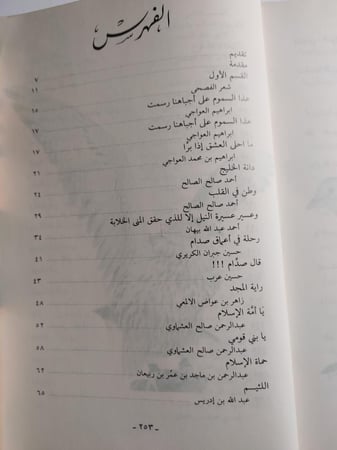 الفهرس
تقديم
مقدمة ٧
القسم الأول
شعر الفصحى ١١
هذا السموم على أجباهنا رسمت
ابراهيم العواجي ١٥
هذا السموم على أجباهنا رسمت
ابراهيم العواجي ١٧
ما احلى العشق إذا برّا
ابراهيم بن محمد العواجي ١٧
دانة الخليج
أحمد صالح الصالح ٢١
وطن في القلب
أحمد صالح الصالح ٢٤
وعسير عسيرة النيل إلا للذي حقق المنى الخلابة
أحمد عبد الله بيهان ٢٩
رحلة في أعماق صدام
حسين جبران الكريري ٣٤
قال صدّام !!!
حسين عرب ٤٣
راية المجد
زاهر بن عواض الالمعي ٤٨
يا أمّة الإسلام
عبدالرحمن صالح العشماوي ٥٢
يا بني قومي
عبدالرحمن صالح العشماوي ٥٨
حماة الإسلام
عبدالرحمن بن ماجد بن عمر بن ربيعان ٦٢
اللئيم
عبد الله بن إدريس ٦٥
- ٢٥٣ -